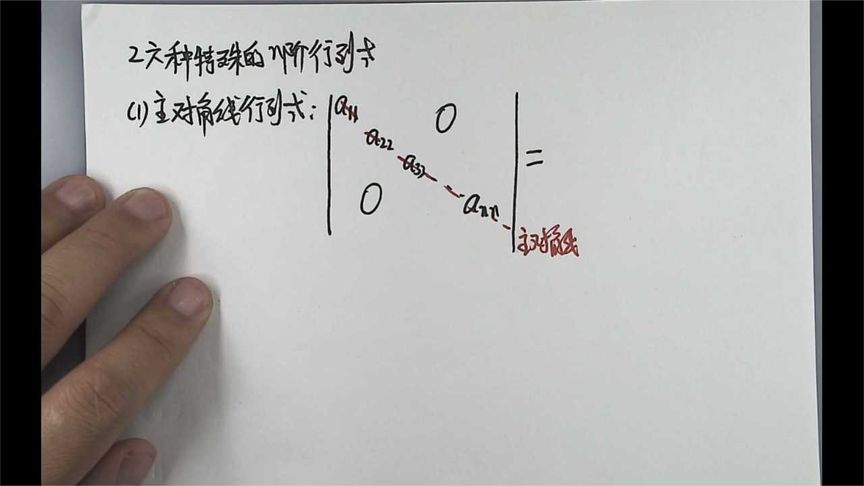 2 六种特殊的n阶行列式
(1) 主对角线行列式:
a11 0
a22
a33
0 ann
=
主对角线